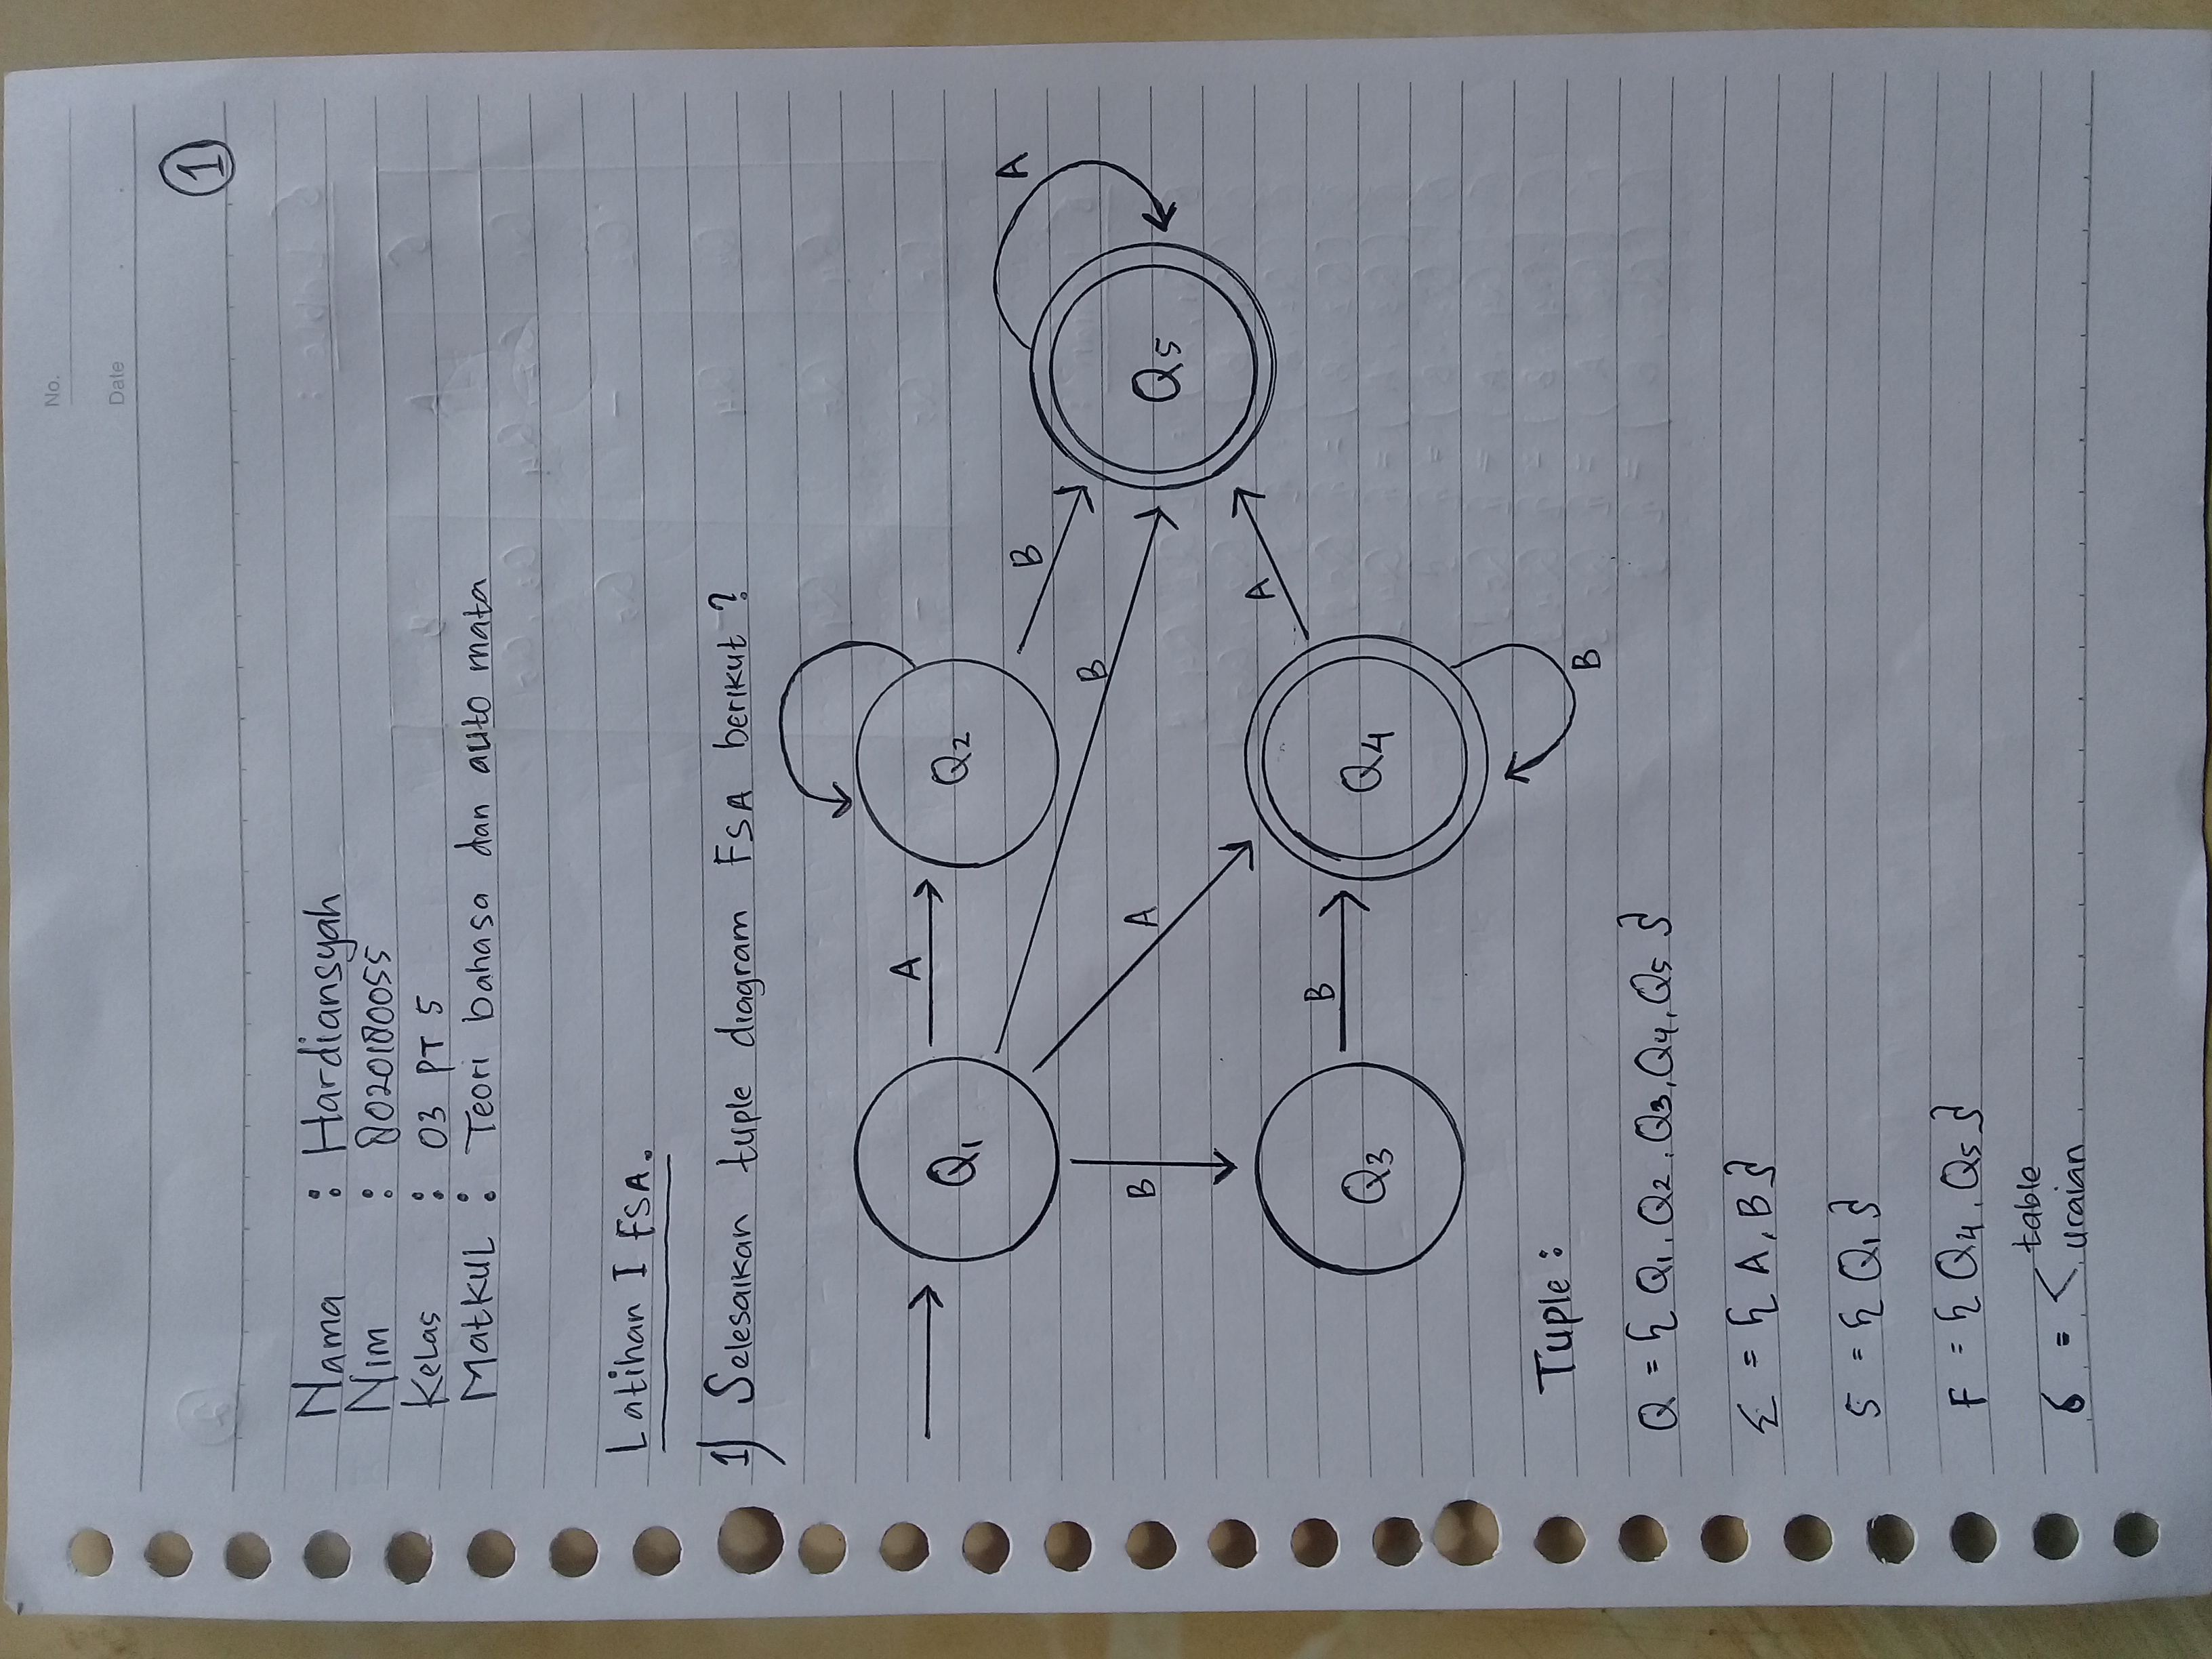 No.
Date
1
Nama : Hardiansyah
Nim : 8020180055
Kelas : 03 PT 5
Matkul : Teori bahasa dan auto mata
Latihan I FSA.
1) Selesaikan tuple diagram FSA berikut?
Q1
A
Q2
B
A
B
B
A
Q5
Q3
B
Q4
A
B
Tuple :
Q = { Q1, Q2, Q3, Q4, Q5 }
Σ = { A, B }
S = { Q1 }
F = { Q4, Q5 }
δ = < table
uraian